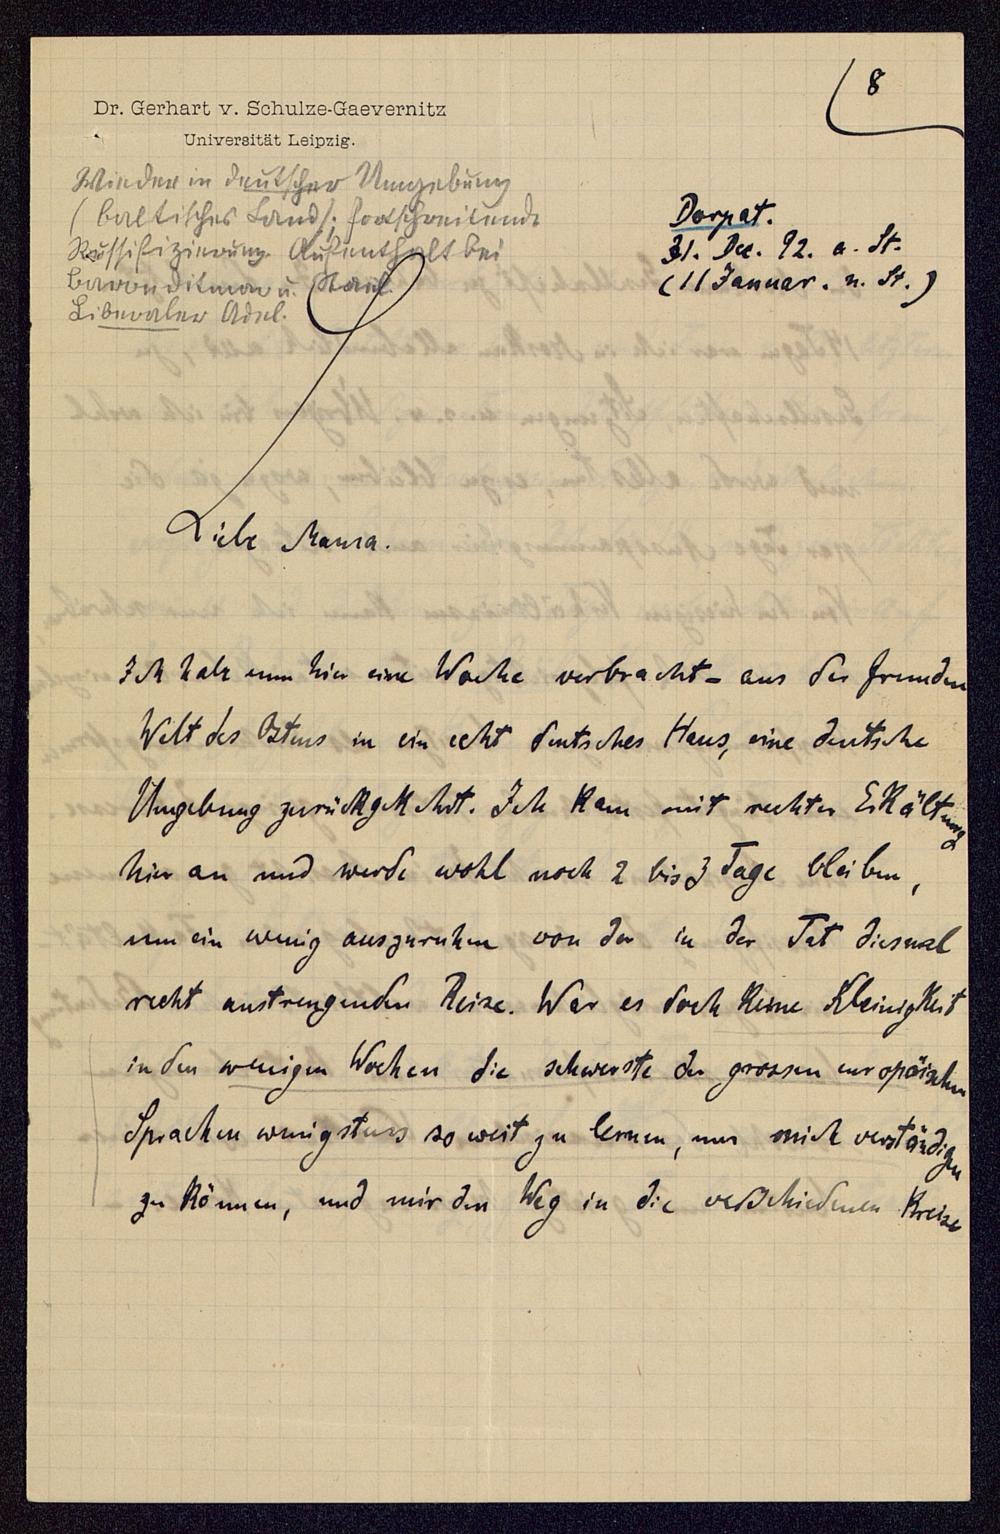 8
Dr. Gerhart v. Schulze-Gaevernitz
Universität Leipzig.
Wieder in deutscher Umgebung
(baltisches Land); fortschreitende
Russifizierung. Aufenthalt bei
Baron Ditmar u.
Liberaler Adel.
Dorpat.
31. Dec. 92. a. St.
(11 Januar. n. St.)
Liebe Mama.
Ich habe nun hier eine Woche verbracht - aus der fremden
Welt des Ostens in ein echt deutsches Haus, eine deutsche
Umgebung zurückgekehrt. Ich kam mit rechter Erkältung
hier an und werde wohl noch 2 bis 3 Tage bleiben,
um ein wenig auszuruhen von der in der Tat diesmal
recht anstrengenden Reise. War es doch keine Kleinigkeit
in den wenigen Wochen die schwerste der grossen europäischen
Sprachen wenigstens so weit zu lernen, um mich verständigen
zu können, und mir den Weg in die verschiedenen Kreise